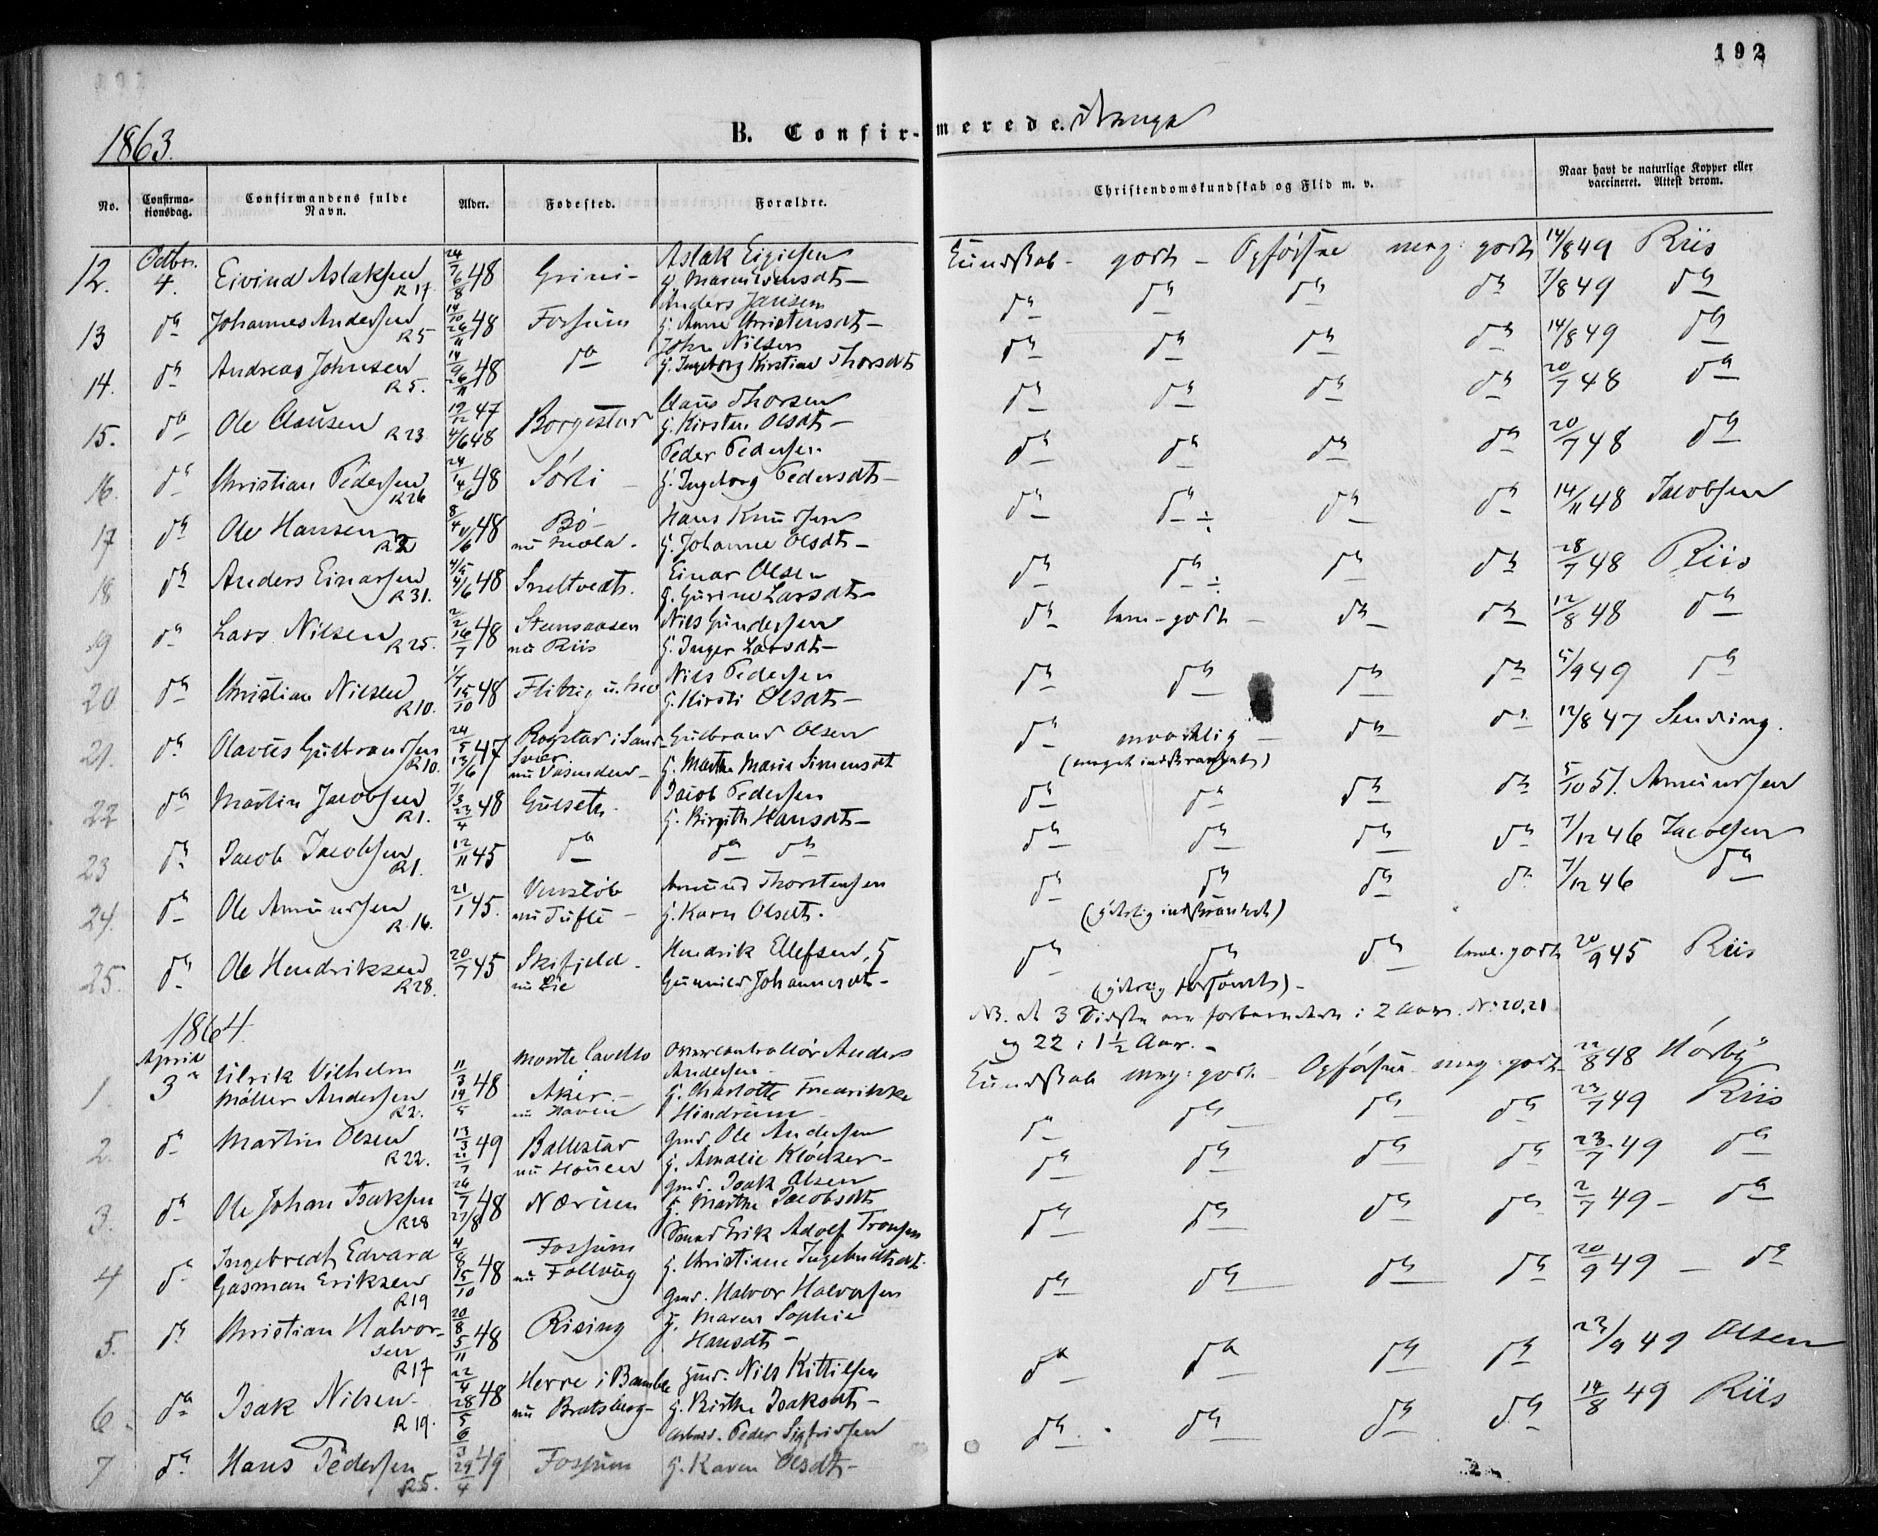 192
1863.
B. Confirmerede. Drenge
No. Confirmationsdag. Confirmandens fulde Navn. Alder. Fødested. Forældre. Christendomskundskab og Flid m. v. Naar havt de naturlige Kopper eller vaccineret. Attest derom.
12. Octbr. 4. Eivind Aslaksen R 17. 24/7 6/8 48 Grini Aslak
Kundskab - godt - Opførsel meg: godt 14/8 49 Riis
13 dº Johannes Andersen R 5 14/10 26/11 48 Fossum Anders Jansen
G. Anne Christensdt
dº dº dº dº 7/8 49 dº
14. dº Andreas Johnsen R 5. 14/9 26/11 48 dº John Nilsen
G. Ingeborg Kirstine Thorsdt
dº dº dº dº 14/8 49 dº
15. dº Ole Clausen R 23 19/12 47 4/6 48 Borgestad Claus Thorsen
G. Kirsten Olsdt
dº dº dº dº 20/7 48 dº
16. dº Christian Pedersen R 26 24/1 4/6 48 Sørli Peder Pedersen
G. Ingeborg Pedersdt
dº dº dº dº 20/7 48 dº
17 dº Ole Hansen 8/4 48 Bø
nu Hans Knudsen
G. Johanne Olsdt
dº dº ÷ dº dº 14/11 48 Jacobsen
18 dº Anders Einarsen R 31. 4/5 4/6 48 Smeltvedt. Einar Olsen
G. Gurine Larsdt
dº dº ÷ dº dº 28/7 48 Riis
19 dº Lars Nilsen R 25. 2/2 16/7 48 Steensaasen
nu Riis Nils Gundersen
G. Inger Larsdt
dº tem. godt - dº dº 12/8 48 dº
20 dº Christian Nilsen R 10. 15/10 48 Nils Pedersen
G. Kirsti Olsdt
dº dº dº dº 5/9 49 dº
21. dº Olavus Gulbrandsen R 10. 24/5 13/6 47 Gulbrand Olsen
G. Marthe Marie Simensdt
dº dº dº 12/8 47
22 dº Martin Jacobsen R 1. 7/3 23/4 48 Gulseth. Jacob Pedersen
G. Birgith Hansdt
dº dº dº dº 5/10 51. Amundsen
23 dº Jacob Jacobsen R 1. 12/11 45 dº dº dº
dº dº dº dº 7/12 46 Jacobsen
24. dº Ole Amundsen R. 16. 21/1 45. Venstøb
nu Tufte Amund Thorstensen
G. Karn Olsdt.
dº dº dº dº 7/12 46 dº
25. dº Ole Hendriksen R 28. 20/7 45 Skifjeld
nu Lie Hendrik Ellefsen, G
Gunnild Johannesdt
dº dº dº tem. godt 20/9 45 Riis
NB. de 3 Sidste ere forberedede i 2 Aar. No 20, 21
og 22 i 1½ Aar.
1864.
1. April 3 Ulrik Vilhelm
Møller Andersen R 2. 11/3 19/5 48
Aker
nu Haven Anders
Andersen
G. Charlotte Fredrikke
Hindrum
Kundskab meg: godt - Opførsel meg: godt 22/8 48 Hørbÿ
2. dº Martin Olsen R 22. 13/3 49 Ballestad
nu Houen gmd. Ole Andersen
G. Amalie Klöcker
dº dº dº dº 23/7 49 Riis
3. dº Ole Johan Isaksen R 28 26/7 27/8 48 Nærum gmd. Isak Olsen
G. Marthe Jacobsdt
dº dº dº dº 23/7 49 dº
4 dº Ingebredt Edvard
Gasman Eriksen R 19 4/8 15/10 48 Fossum
nu Follaug Erik Adolf Tronsen
G. Christiane Ingebredtsdt.
dº dº dº dº 2/7 49 dº
5. dº Christian Halvorsen R 17 20/8 5/11 48 Rising gmd. Halvor Halvorsen
G. Maren Sophie
Hansdt
dº dº dº dº 20/9 49 - dº
6. dº Isak Nilsen R 19. 22/4 28/5 48 Herre i Bamble
nu Bratsberg gmd. Nils Kittilsen
G. Birthe Isaksdt
dº dº dº dº 23/9 49 Olsen
7 dº Hans Pedersen R 5. 6/3 29/4 49 Fossum Peder Sigfridsen
G. Karen Olsdt
dº dº dº dº 14/8 49 Riis